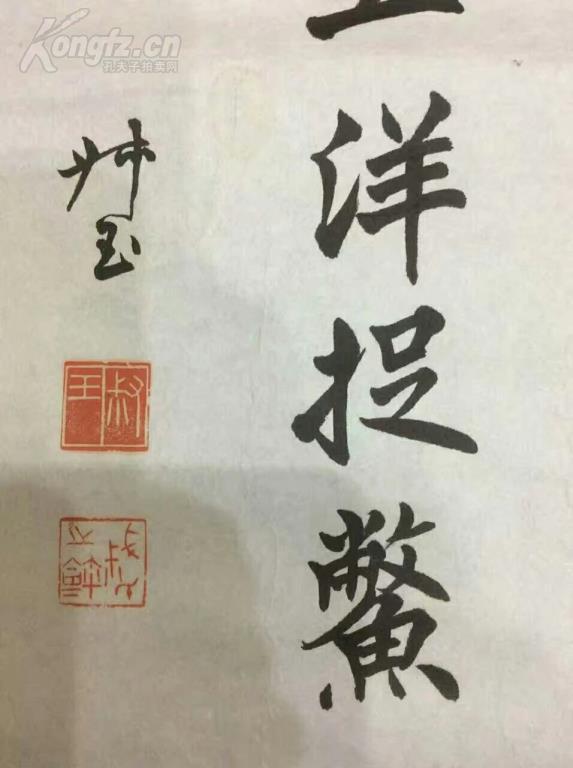 Kongfz.cn
孔夫子拍卖网
洋捉鱉
叔玉